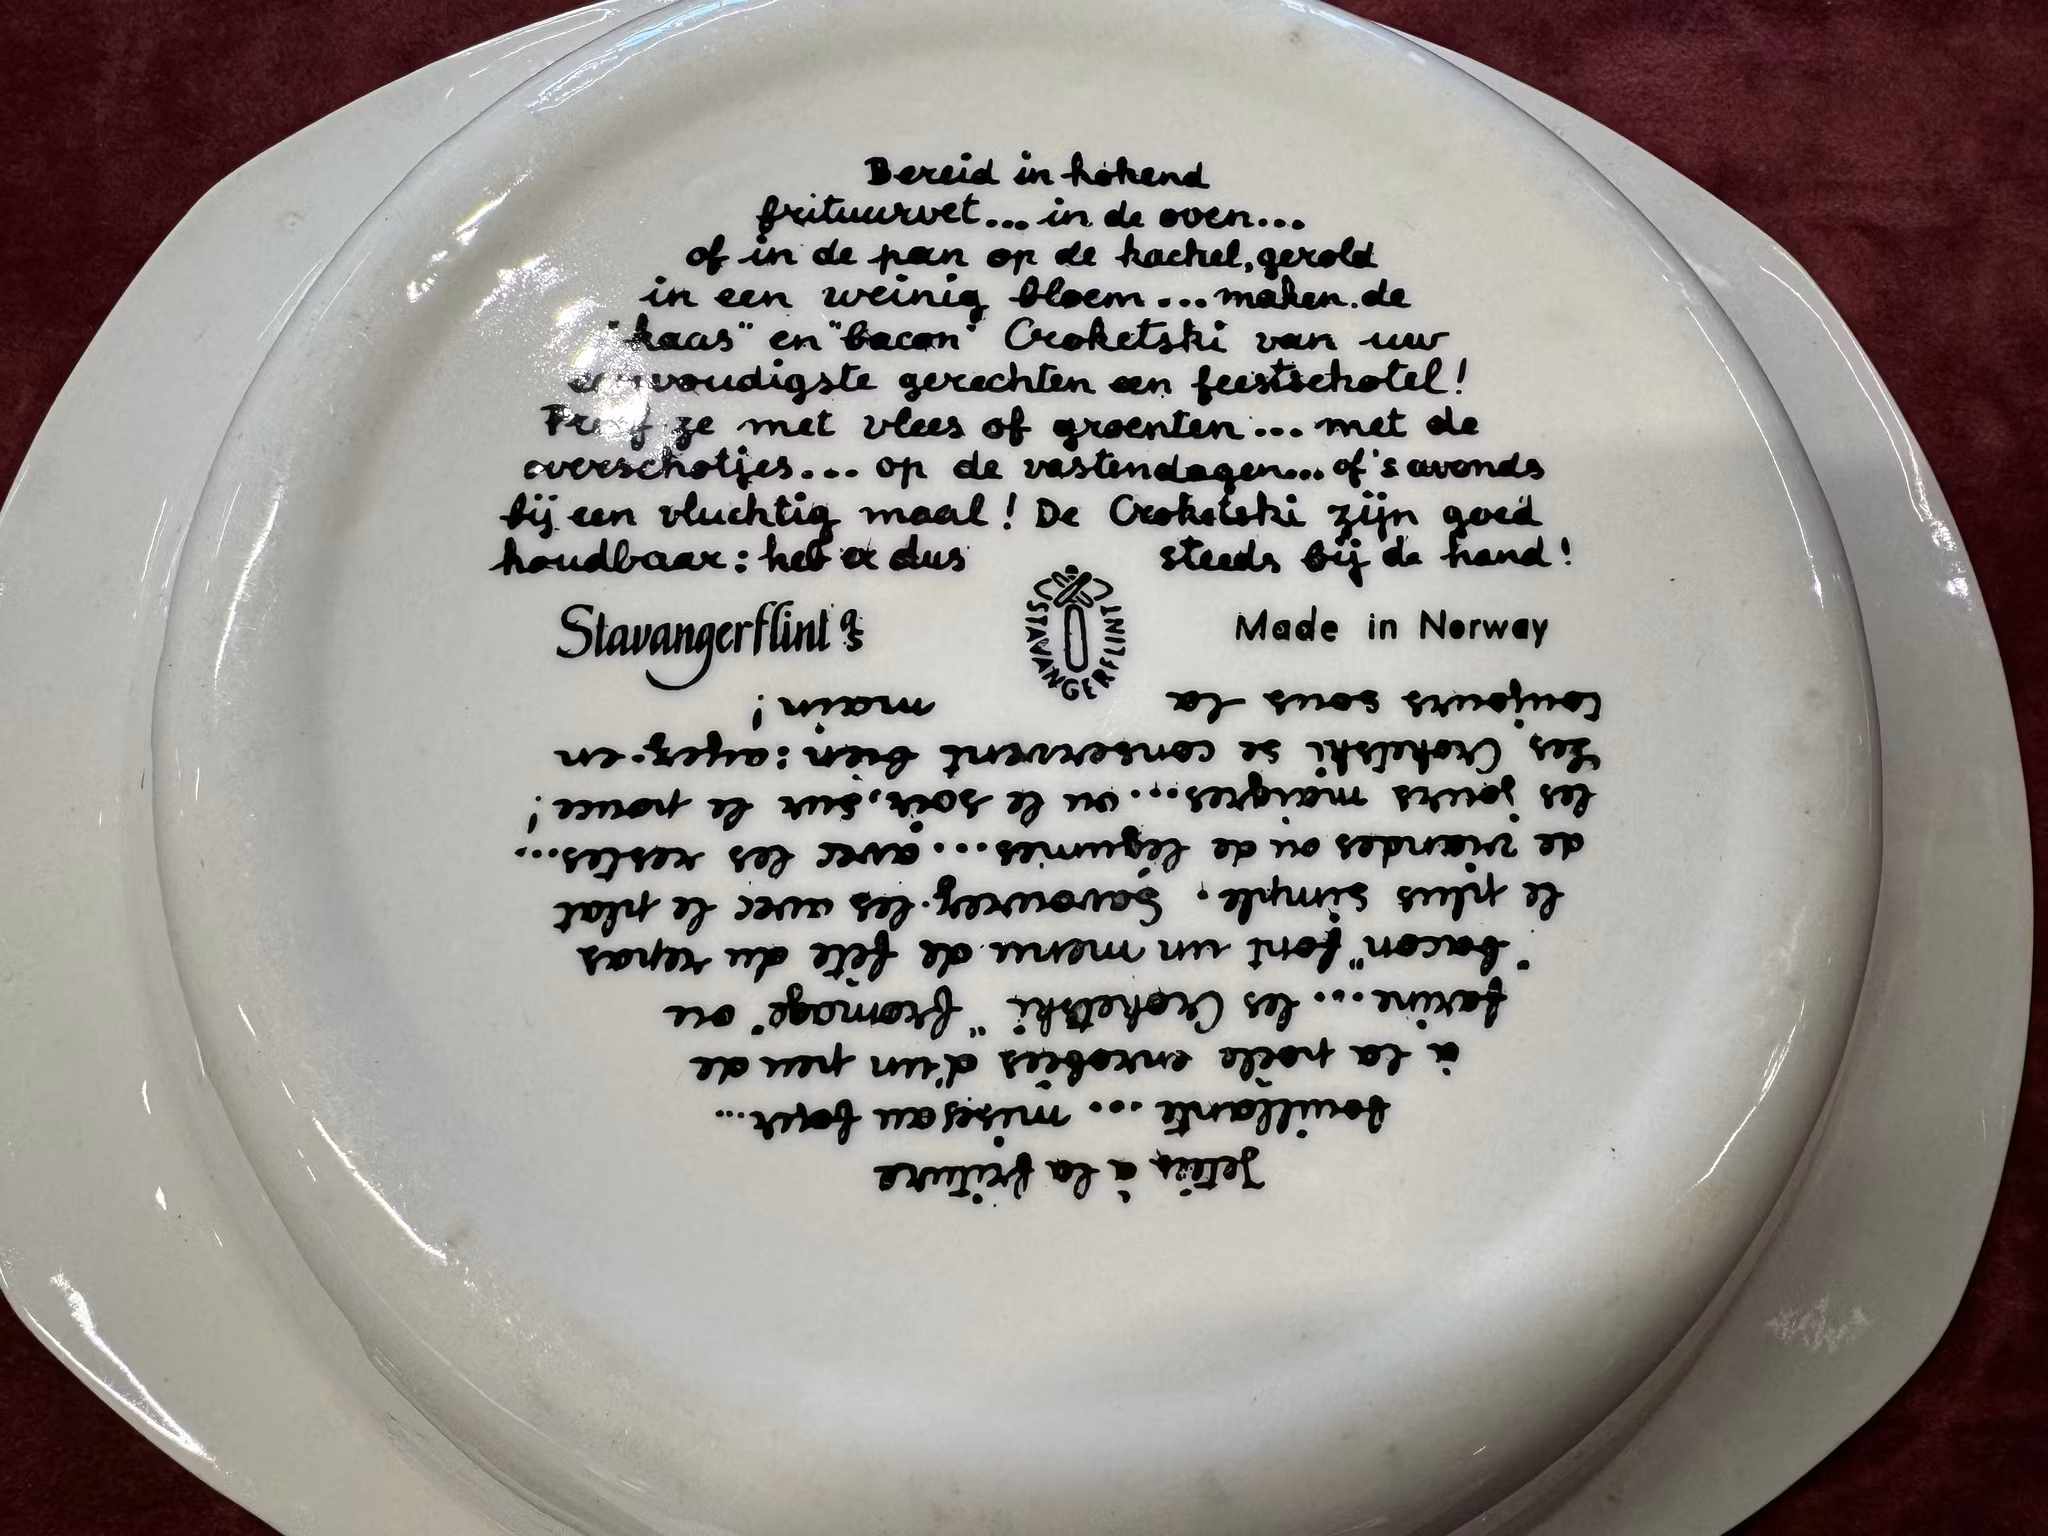 Bereid in kokend
frituurvet... in de oven...
of in de pan op de kachel, gerold
in een weinig bloem... maken de
"kaas" en "bacon" Croketski van uw
eenvoudigste gerechten een feestschotel!
Proef ze met vlees of groenten... met de
overschotjes... op de vastendagen... of 's avonds
bij een vluchtig maal! De Croketski zijn goed
houdbaar: heb er dus steeds bij de hand!
Stavangerflint a/s
STAVANGERFLINT
Made in Norway
Jetés à la friture
bouillante... mises au four...
à la poêle enrobées d'un peu de
farine... les Croketski "fromage" ou
"bacon" font un menu de fête du repas
le plus simple. Savourez-les avec le plat
de viandes ou de légumes... avec les restes...
les jours maigres... ou le soir, sur le pouce!
Les Croketski se conservent bien: ayez-en
toujours sous la main!